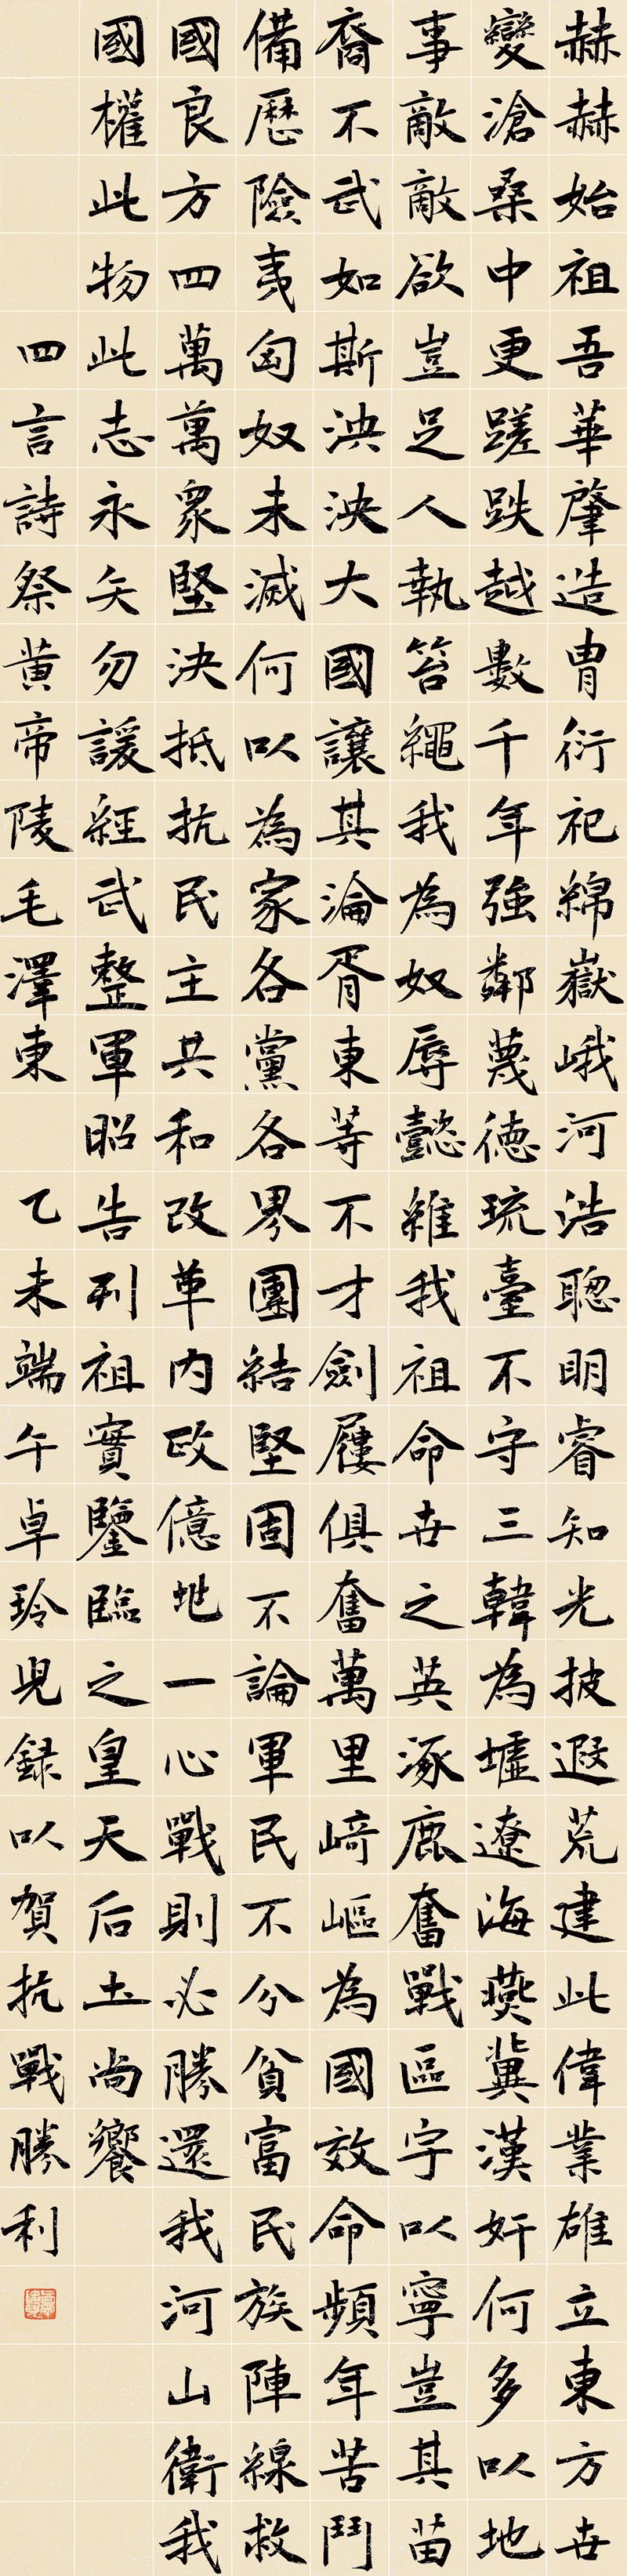 赫赫始祖吾華肇造胄衍祀綿嶽峨河浩聰明睿知光披遐荒建此偉業雄立東方世
變滄桑中更蹉跌越數千年強鄰蔑德琉臺不守三韓為墟遼海燕冀漢奸何多以地
事敵敵欲豈足人執笞繩我為奴辱懿維我祖命世之英涿鹿奮戰區字以寧豈其苗
裔不武如斯泱泱大國讓其淪胥東等不才劍屨俱奮萬里崎嶇為國效命頻年苦鬥
備歷險夷匈奴未滅何以為家各黨各界團結堅固不論軍民不分貧富民族陣線救
國良方四萬萬眾堅決抵抗民主共和改革內政億兆一心戰則必勝還我河山衛我
國權此物此志永矢勿諼經武整軍昭告列祖實鑒臨之皇天后土尚饗
四言詩祭黃帝陵毛澤東 乙未端午卓玲兒録以賀抗戰勝利